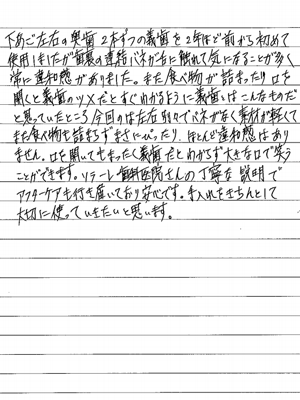 下あご左右の奥歯2本ずつの義歯を2年ほど前から初めて
使用しましたが歯裏の連結バネが舌に触れて気になることが多く
常に違和感がありました。また食べ物が詰まったり口を
開くと義歯のツメだとすぐわかるように義歯はこんなものだ
と思っていたところ今回のは左右別々でバネがなく素材が軽くて
また食べ物も詰まらずまさにぴったり、ほとんど違和感はあり
ません。口を開いてもまったく義歯だとわからず大きな口で笑う
ことができます。ソラーレ歯科医院さんの丁寧な説明で
アフターケアも行き届いており安心です。手入れをきちんとして
大切に使っていきたいと思います。